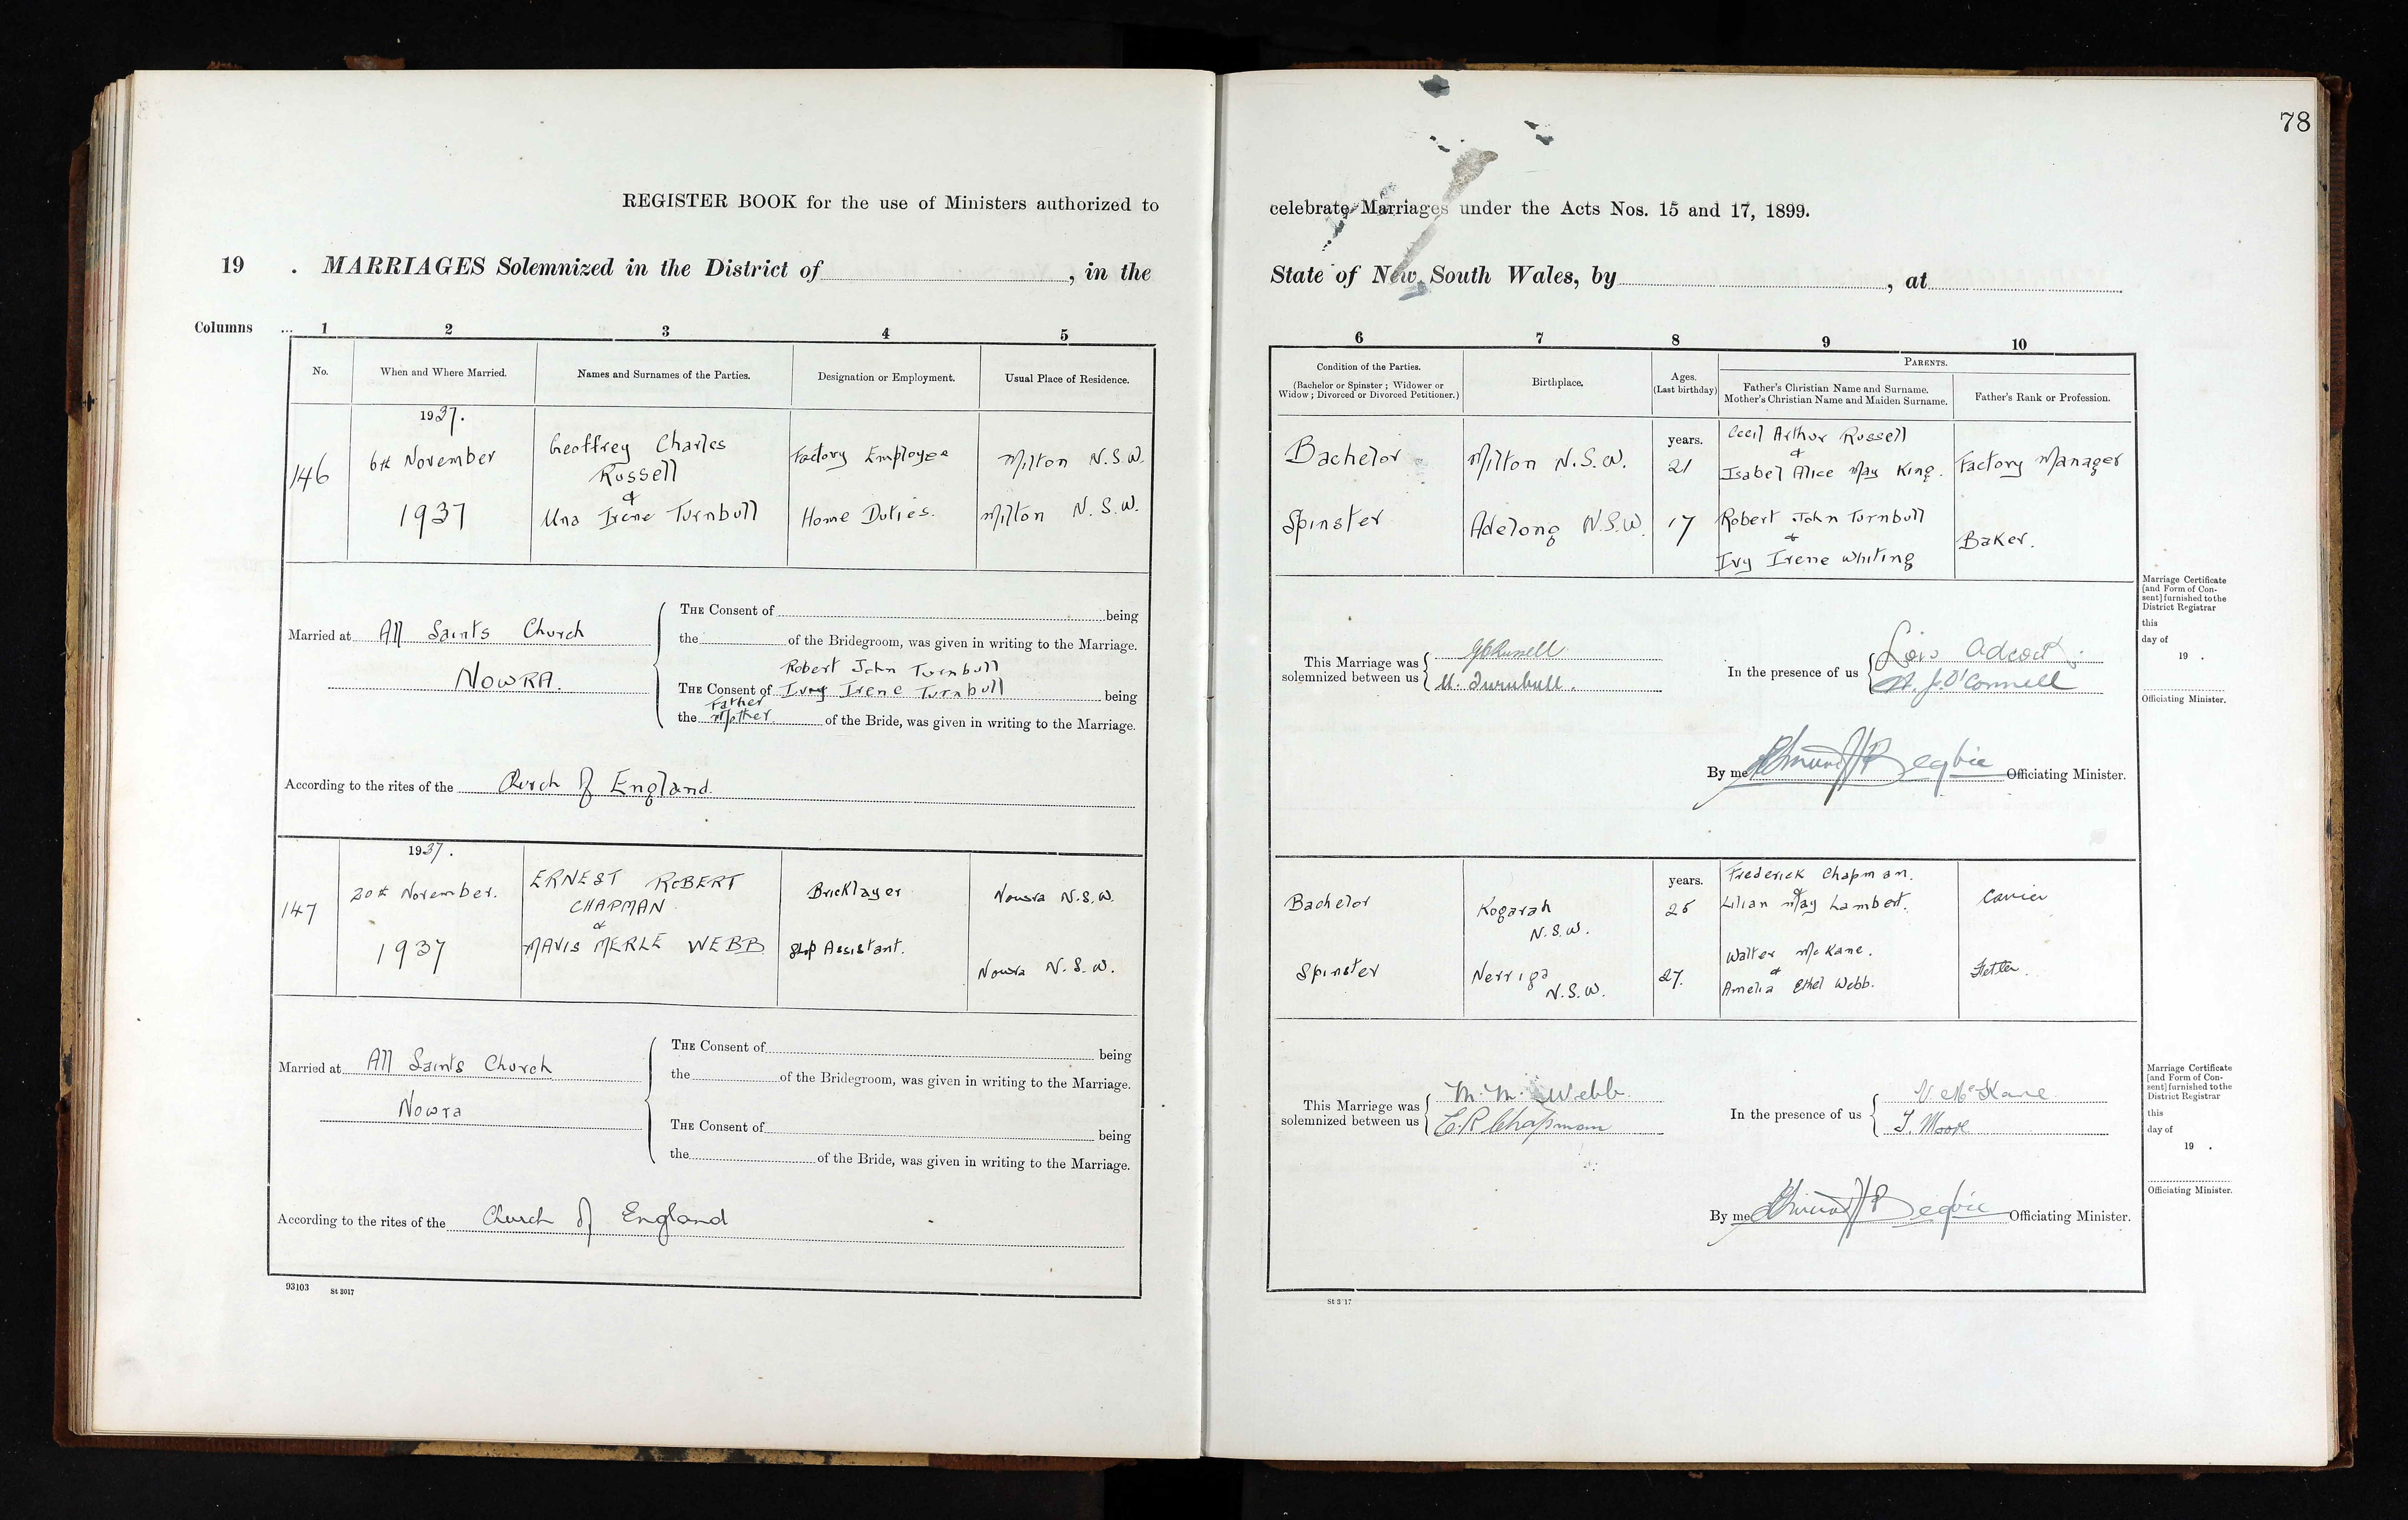 78
REGISTER BOOK for the use of Ministers authorized to
19 . MARRIAGES Solemnized in the District of , in the
Columns ... 1 2 3 4 5
No. When and Where Married. Names and Surnames of the Parties. Designation or Employment. Usual Place of Residence.
1937.
146 6th November Geoffrey Charles Factory Employee Milton N.S.W.
Russell
&
1937 Una Irene Turnbull Home Duties. Milton N.S.W.
Married at All Saints Church
NOWRA.
THE Consent of being
the of the Bridegroom, was given in writing to the Marriage.
Robert John Turnbull
THE Consent of Ivy Irene Turnbull being
Father
the Mother of the Bride, was given in writing to the Marriage.
According to the rites of the Church of England.
1937.
147 20th November. ERNEST ROBERT Bricklayer Nowra N.S.W.
CHAPMAN
&
1937 MAVIS MERLE WEBB Shop Assistant.
Nowra N.S.W.
Married at All Saints Church
Nowra
THE Consent of being
the of the Bridegroom, was given in writing to the Marriage.
THE Consent of being
the of the Bride, was given in writing to the Marriage.
According to the rites of the Church of England
93103 St 3017
celebrate Marriages under the Acts Nos. 15 and 17, 1899.
State of New South Wales, by , at
6 7 8 9 10
Condition of the Parties. Birthplace. Ages. PARENTS.
(Bachelor or Spinster ; Widower or (Last birthday) Father's Christian Name and Surname. Father's Rank or Profession.
Widow ; Divorced or Divorced Petitioner.) Mother's Christian Name and Maiden Surname.
years. Cecil Arthur Russell
&
Bachelor Milton N.S.W. 21 Isabel Alice May King. Factory Manager
Spinster Adelong N.S.W. 17 Robert John Turnbull
&
Baker.
Ivy Irene Whiting
Marriage Certificate
[and Form of Con-
sent] furnished to the
District Registrar
this
day of
19 .
Officiating Minister.
This Marriage was
solemnized between us
G C Russell
U. Turnbull.
In the presence of us
J. O'Connell
By me Edmund Begbie Officiating Minister.
years. Frederick Chapman.
&
Bachelor Kogarah 25 Lilian May Lambert. Carrier
N.S.W.
Walter McKane.
&
Spinster Nerriga 27. Amelia Ethel Webb. Fettler.
N.S.W.
Marriage Certificate
[and Form of Con-
sent] furnished to the
District Registrar
this
day of
19 .
Officiating Minister.
This Marriage was
solemnized between us
M. M. Webb.
E. R. Chapman
In the presence of us
V. McKane
T. Moore
By me Edmund Begbie Officiating Minister.
St 3 17